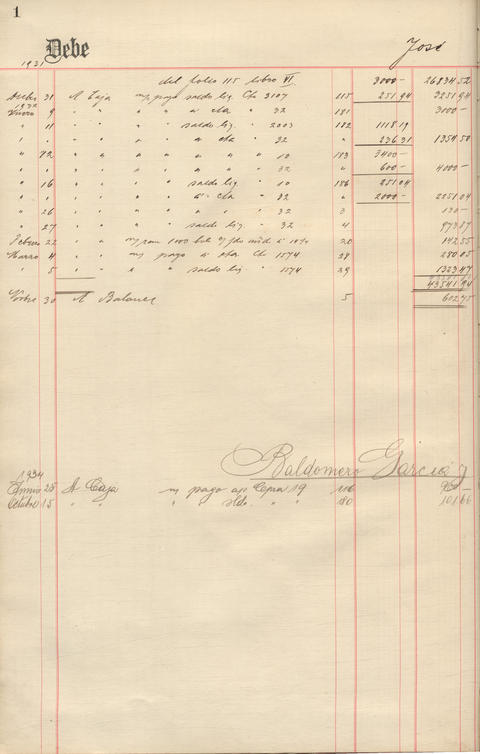 1
Debe José
1931
del folio 115 libro VI. 3000- 2683452
Dicbre 31 A Caja m/ pago saldo liq. Cta 3107 115 251,94 3251,94
1932
Enero 9 " " " " a cta " 32 181 3000-
" 11 " " " " saldo liq. " 2003 182 1118,19
" " " " " " a cta " 32 " 236,31 1354,50
" " " " " " " " 10 183 3400-
" " " " " " " " " 32 " 600- 4000-
" 16 " " " " saldo liq. " 10 186 251,04
" " " " " " a cta " 32 " 2000- 2251,04
" 26 " " " " " " " 32 3 130-
" 27 " " " " saldo liq. " 32 4
Febrero 22 " " 1000 20 142,55
Marzo 4 " " m/ pago a cta Cta 1574 28 280,05
" 5 " " " " saldo liq " 1574 29 1323,47
43541,94
Nvbre 30 A Balance 5 602,75
Baldomero Garcia
1934
Junio 25 A Caja m/ pago 19 116
Octubre 15 " " " " sldo. " " 180 101,66